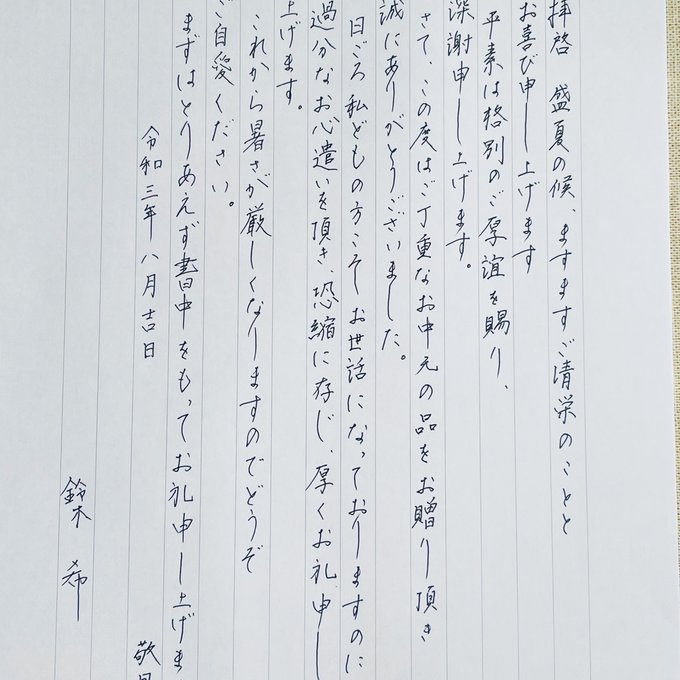 拝啓 盛夏の候、ますますご清栄のことと
お喜び申し上げます
平素は格別のご厚誼を賜り、
深謝申し上げます。
さて、この度はご丁重なお中元の品をお贈り頂き
誠にありがとうございました。
日ごろ私どもの方こそお世話になっておりますのに
過分なお心遣いを頂き、恐縮に存じ、厚くお礼申し
上げます。
これから暑さが厳しくなりますのでどうぞ
ご自愛ください。
まずはとりあえず書中をもってお礼申し上げま
敬
令和三年八月吉日
鈴木 希